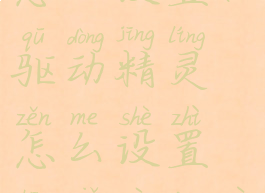 qū dòng jīng líng
驱动精灵
zěn me shè zhì
怎么设置